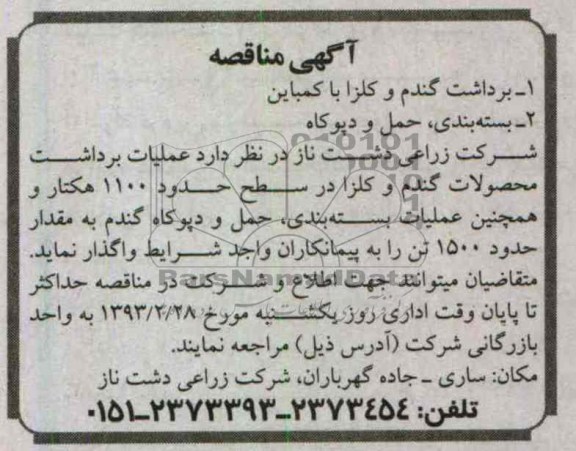 آگهی مناقصه
۱ـ برداشت گندم و کلزا با کمباین
۲ـ بسته‌بندی، حمل و دپوکاه
شرکت زراعی دشت ناز در نظر دارد عملیات برداشت
محصولات گندم و کلزا در سطح حدود ۱۱۰۰ هکتار و
همچنین عملیات بسته‌بندی، حمل و دپوکاه گندم به مقدار
حدود ۱۵۰۰ تن را به پیمانکاران واجد شرایط واگذار نماید.
متقاضیان میتوانند جهت اطلاع و شرکت در مناقصه حداکثر
تا پایان وقت اداری روز یکشنبه مورخ ۱۳۹۳/۲/۲۸ به واحد
بازرگانی شرکت (آدرس ذیل) مراجعه نمایند.
مکان: ساری ـ جاده گهرباران، شرکت زراعی دشت ناز
تلفن: ۲۳۷۳۴۵۴ـ۲۳۷۳۳۹۳ـ۰۱۵۱